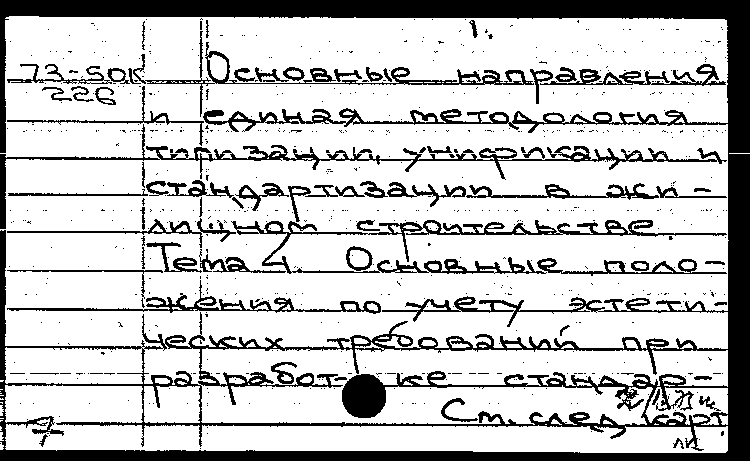 1.
73-50к Основные направления
226
и единая методология
типизации, унификации и
стандартизации в жи-
лищном строительстве.
Тема 4. Основные поло-
жения по учету эстети-
ческих требований при
разработ- ке стандар-
См. след. карт
7